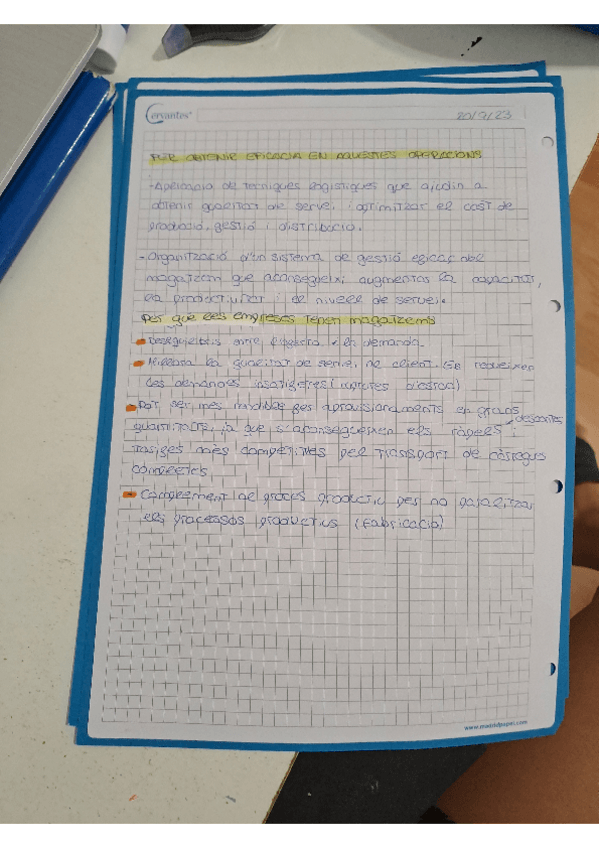 Cervantes
20/9/23
PER OBTENIR EFICACIA EN AQUESTES OPERACIONS
-Aplicació de tecniques logistiques que ajudin a
obtenir qualitat de servei, i optimitzar el cost de
producció, gestió i distribució.
-Organització d'un sistema de gestió eficaç del
magatzem que aconsegueixi augmentar la capacitat,
la productivitat i el nivell de servei.
Per que les empreses tenen magatzems
Desequilibris entre l'oferta i la demanda.
Millora la qualitat de servei, al client. (Es
les demandes insatisferes (ruptures d'estoc)
Pot ser més rendible fer aprovisionaments en grans
quantitats, ja que s'aconsegueixen els i descomptes
tarifes més competitives pel transport de càrregues
completes
Complement al procés productiu per no paralitzar
els processos productius (fabricació)
www.madridpapel.com